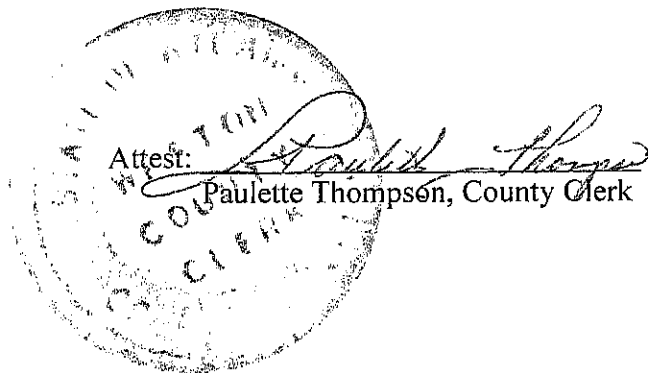 Attest: Paulette Thompson
Paulette Thompson, County Clerk
WESTON
COUNTY
CLERK